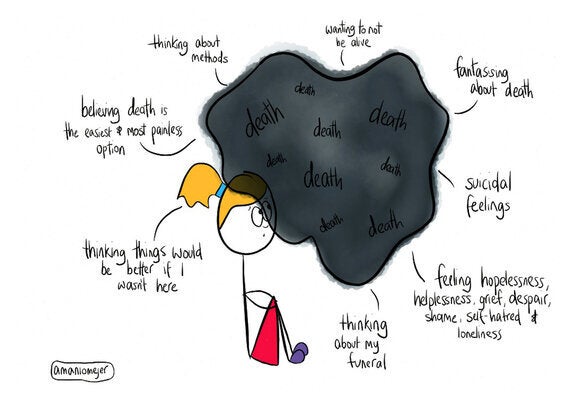 wanting to not
be alive
thinking about
methods
fantasising
about death
believing death is
the easiest & most painless
option
death
death
death
death
death
death
death
death
death
suicidal
feelings
thinking things would
be better if I
wasn't here
feeling hopelessness,
helplessness, grief, despair,
shame, self-hatred &
loneliness
thinking
about my
funeral